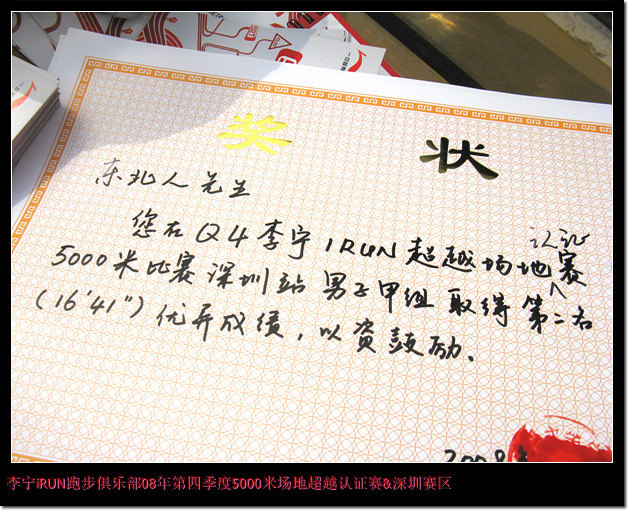 奖状
东北人先生
认证
您在Q4李宁IRUN超越场地赛
5000米比赛深圳站 男子甲组 取得第二名
(16'41")优异成绩,以资鼓励.
2008年
李宁iRUN跑步俱乐部08年第四季度5000米场地超越认证赛&深圳赛区